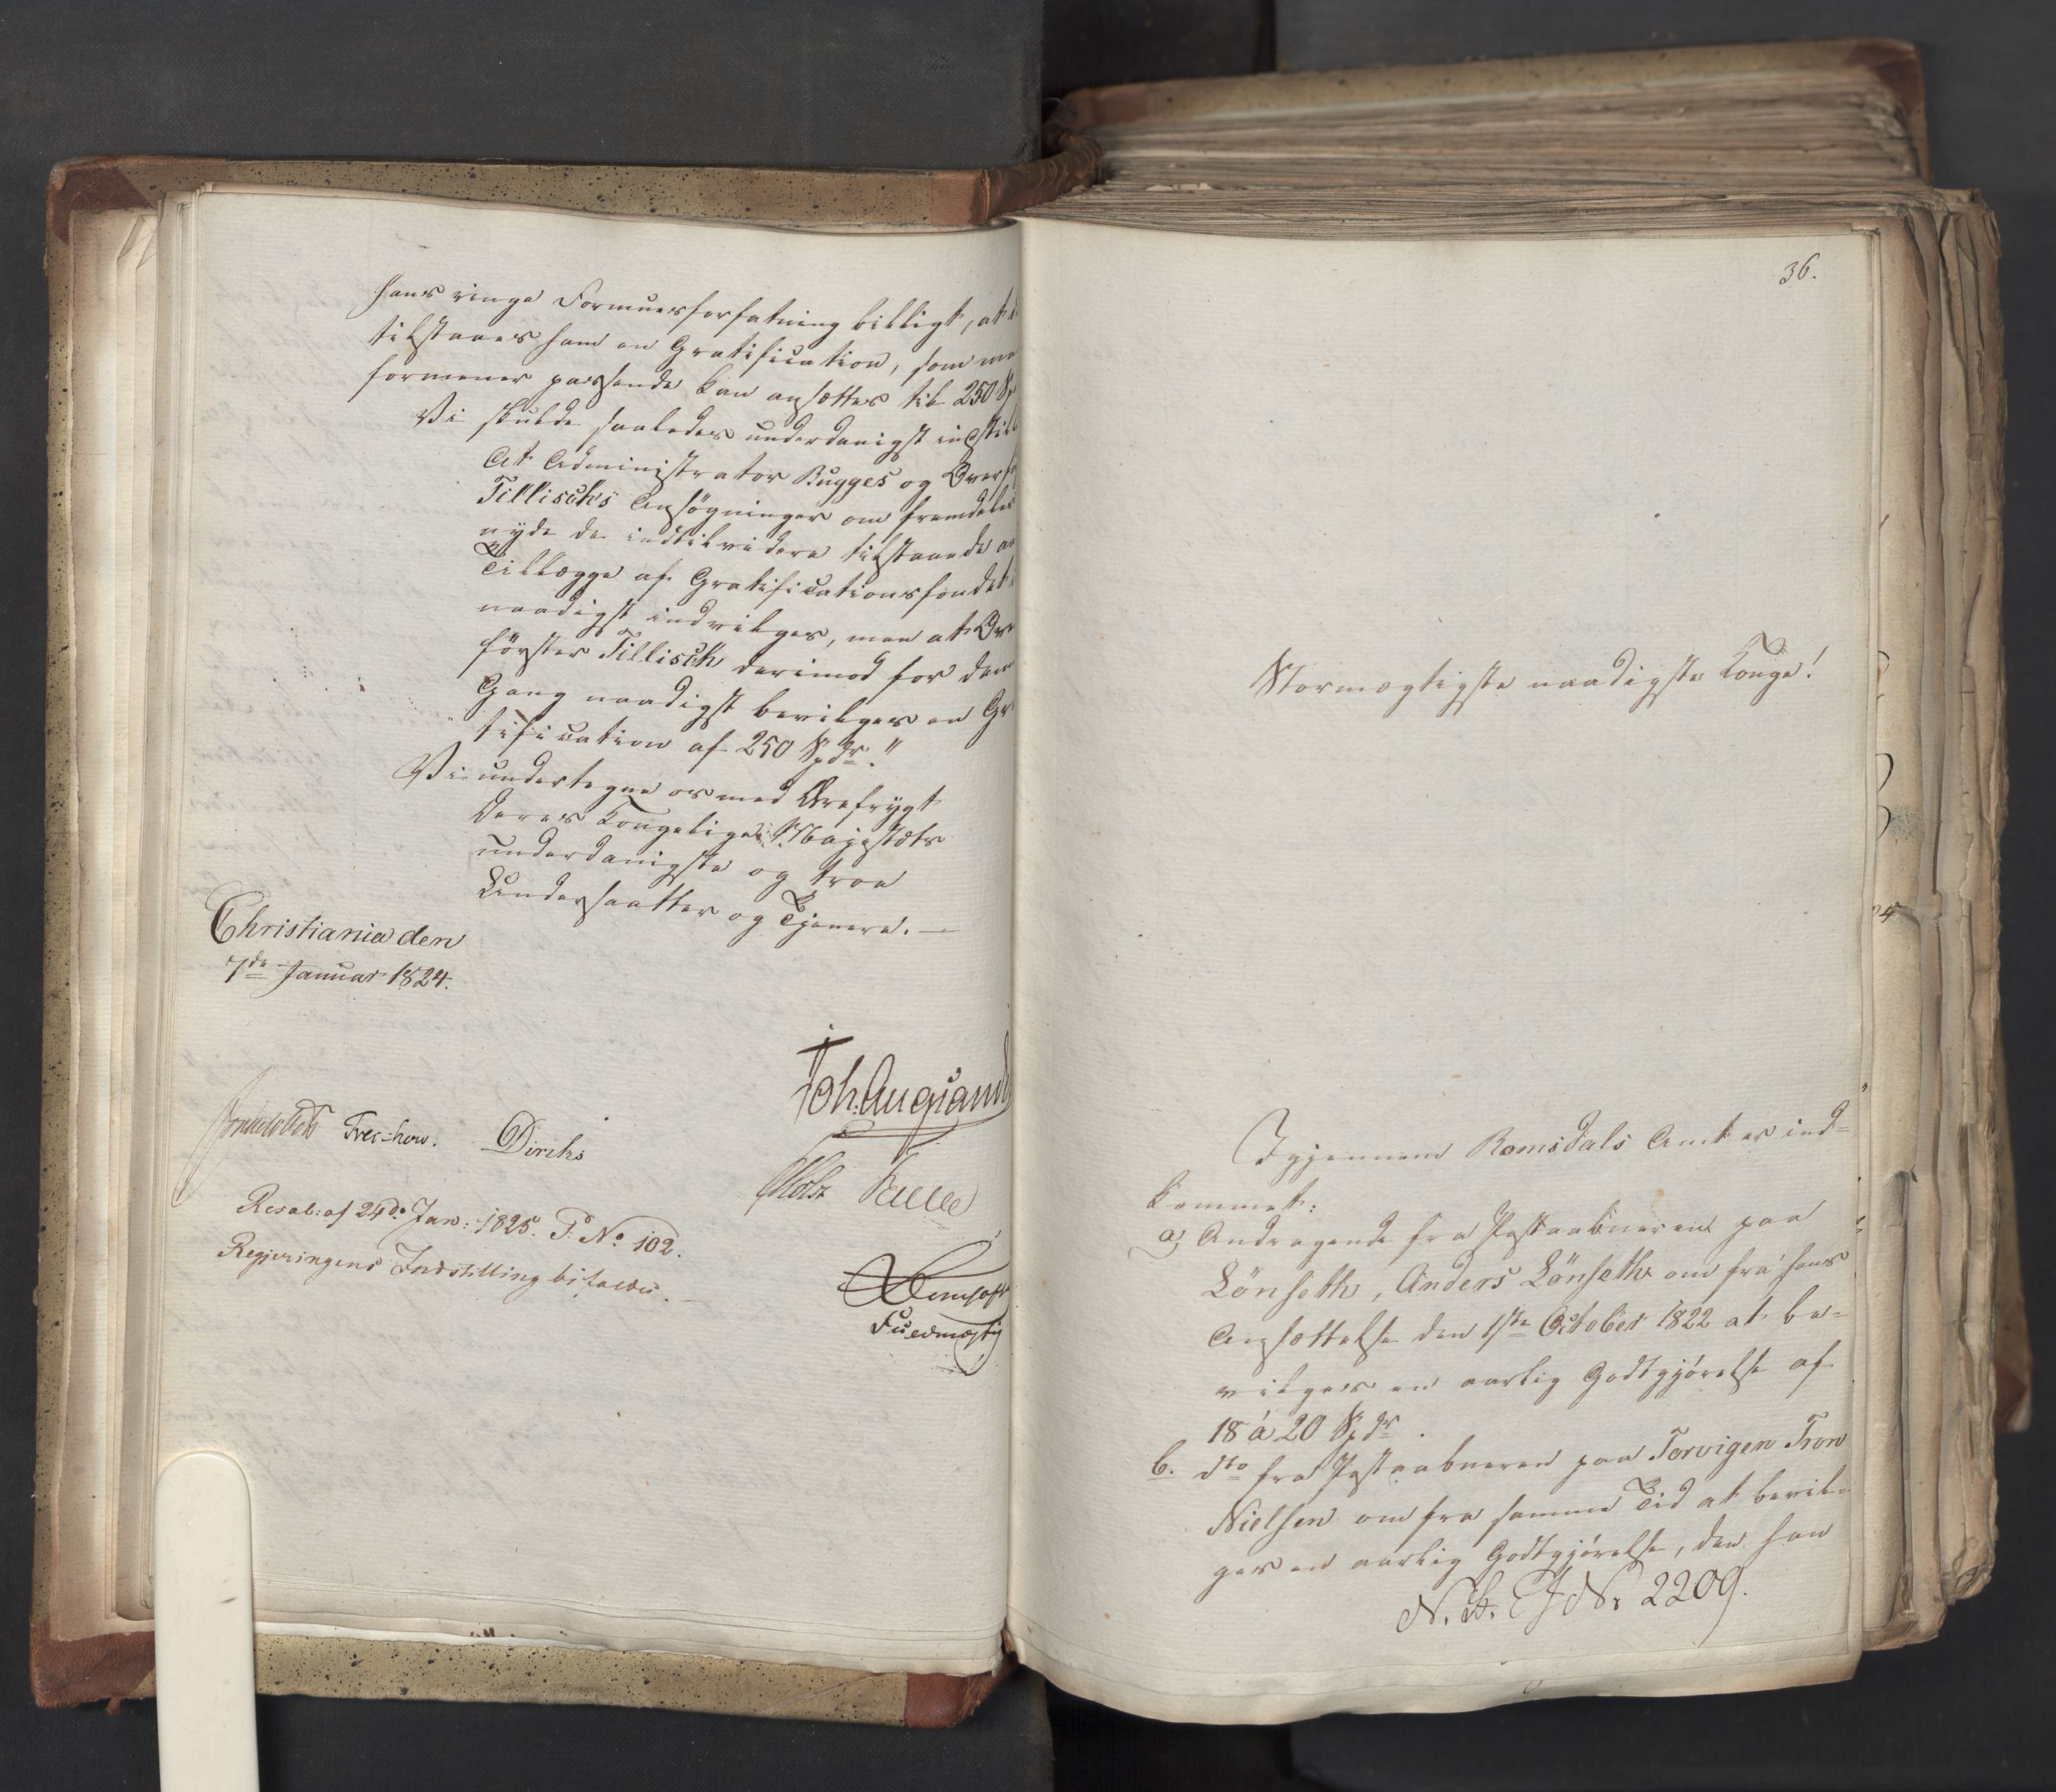 hans ringe Formuesforfatning billigt, at
tilstaaes ham en Gratification, som
formener passende kan ansættes til 250 Sp
Vi skulde saaledes underdanigst indstil
At Administrator Bugges og Overf
Tillischs Ansøgninger om fremdeles
nyde de indtilvidere tilstaaede
Tillægge af Gratificationsfondet
naadigst indvilges, men at Ov
förster Tillisch derimod for den
Gang naadigst bevilges en Gr
tification af 250 Spdr."
Vi undertegne os med Ærefrygt
Deres Kongelige Majestæts
underdanigste og troe
Undersaatter og Tjenere. —
Christiania den
7de Januar 1824.
Joh. Aug Sand
Treschow. Diriks
Holst Falle
Resol: af 24de Jan: 1825. P. No 102.
Regjeringens Indstilling bifaldes. —
Fuldmægtig
36.
Stormægtigste naadigste Konge!
Igjennem Romsdals Amt er ind-
kommet:
a, Andragende fra Postaabneren paa
Lönseth, Anders Lönseth om fra hans
Ansættelse den 1ste October 1822 at be-
vilges en aarlig Godtgjörelse af
18 à 20 Spdr.
b. dto fra Postaabneren paa Torvigen Tron
Nielsen om fra samme Tid at bevil-
ges en aarlig Godtgjörelse, den han
J No 2209.